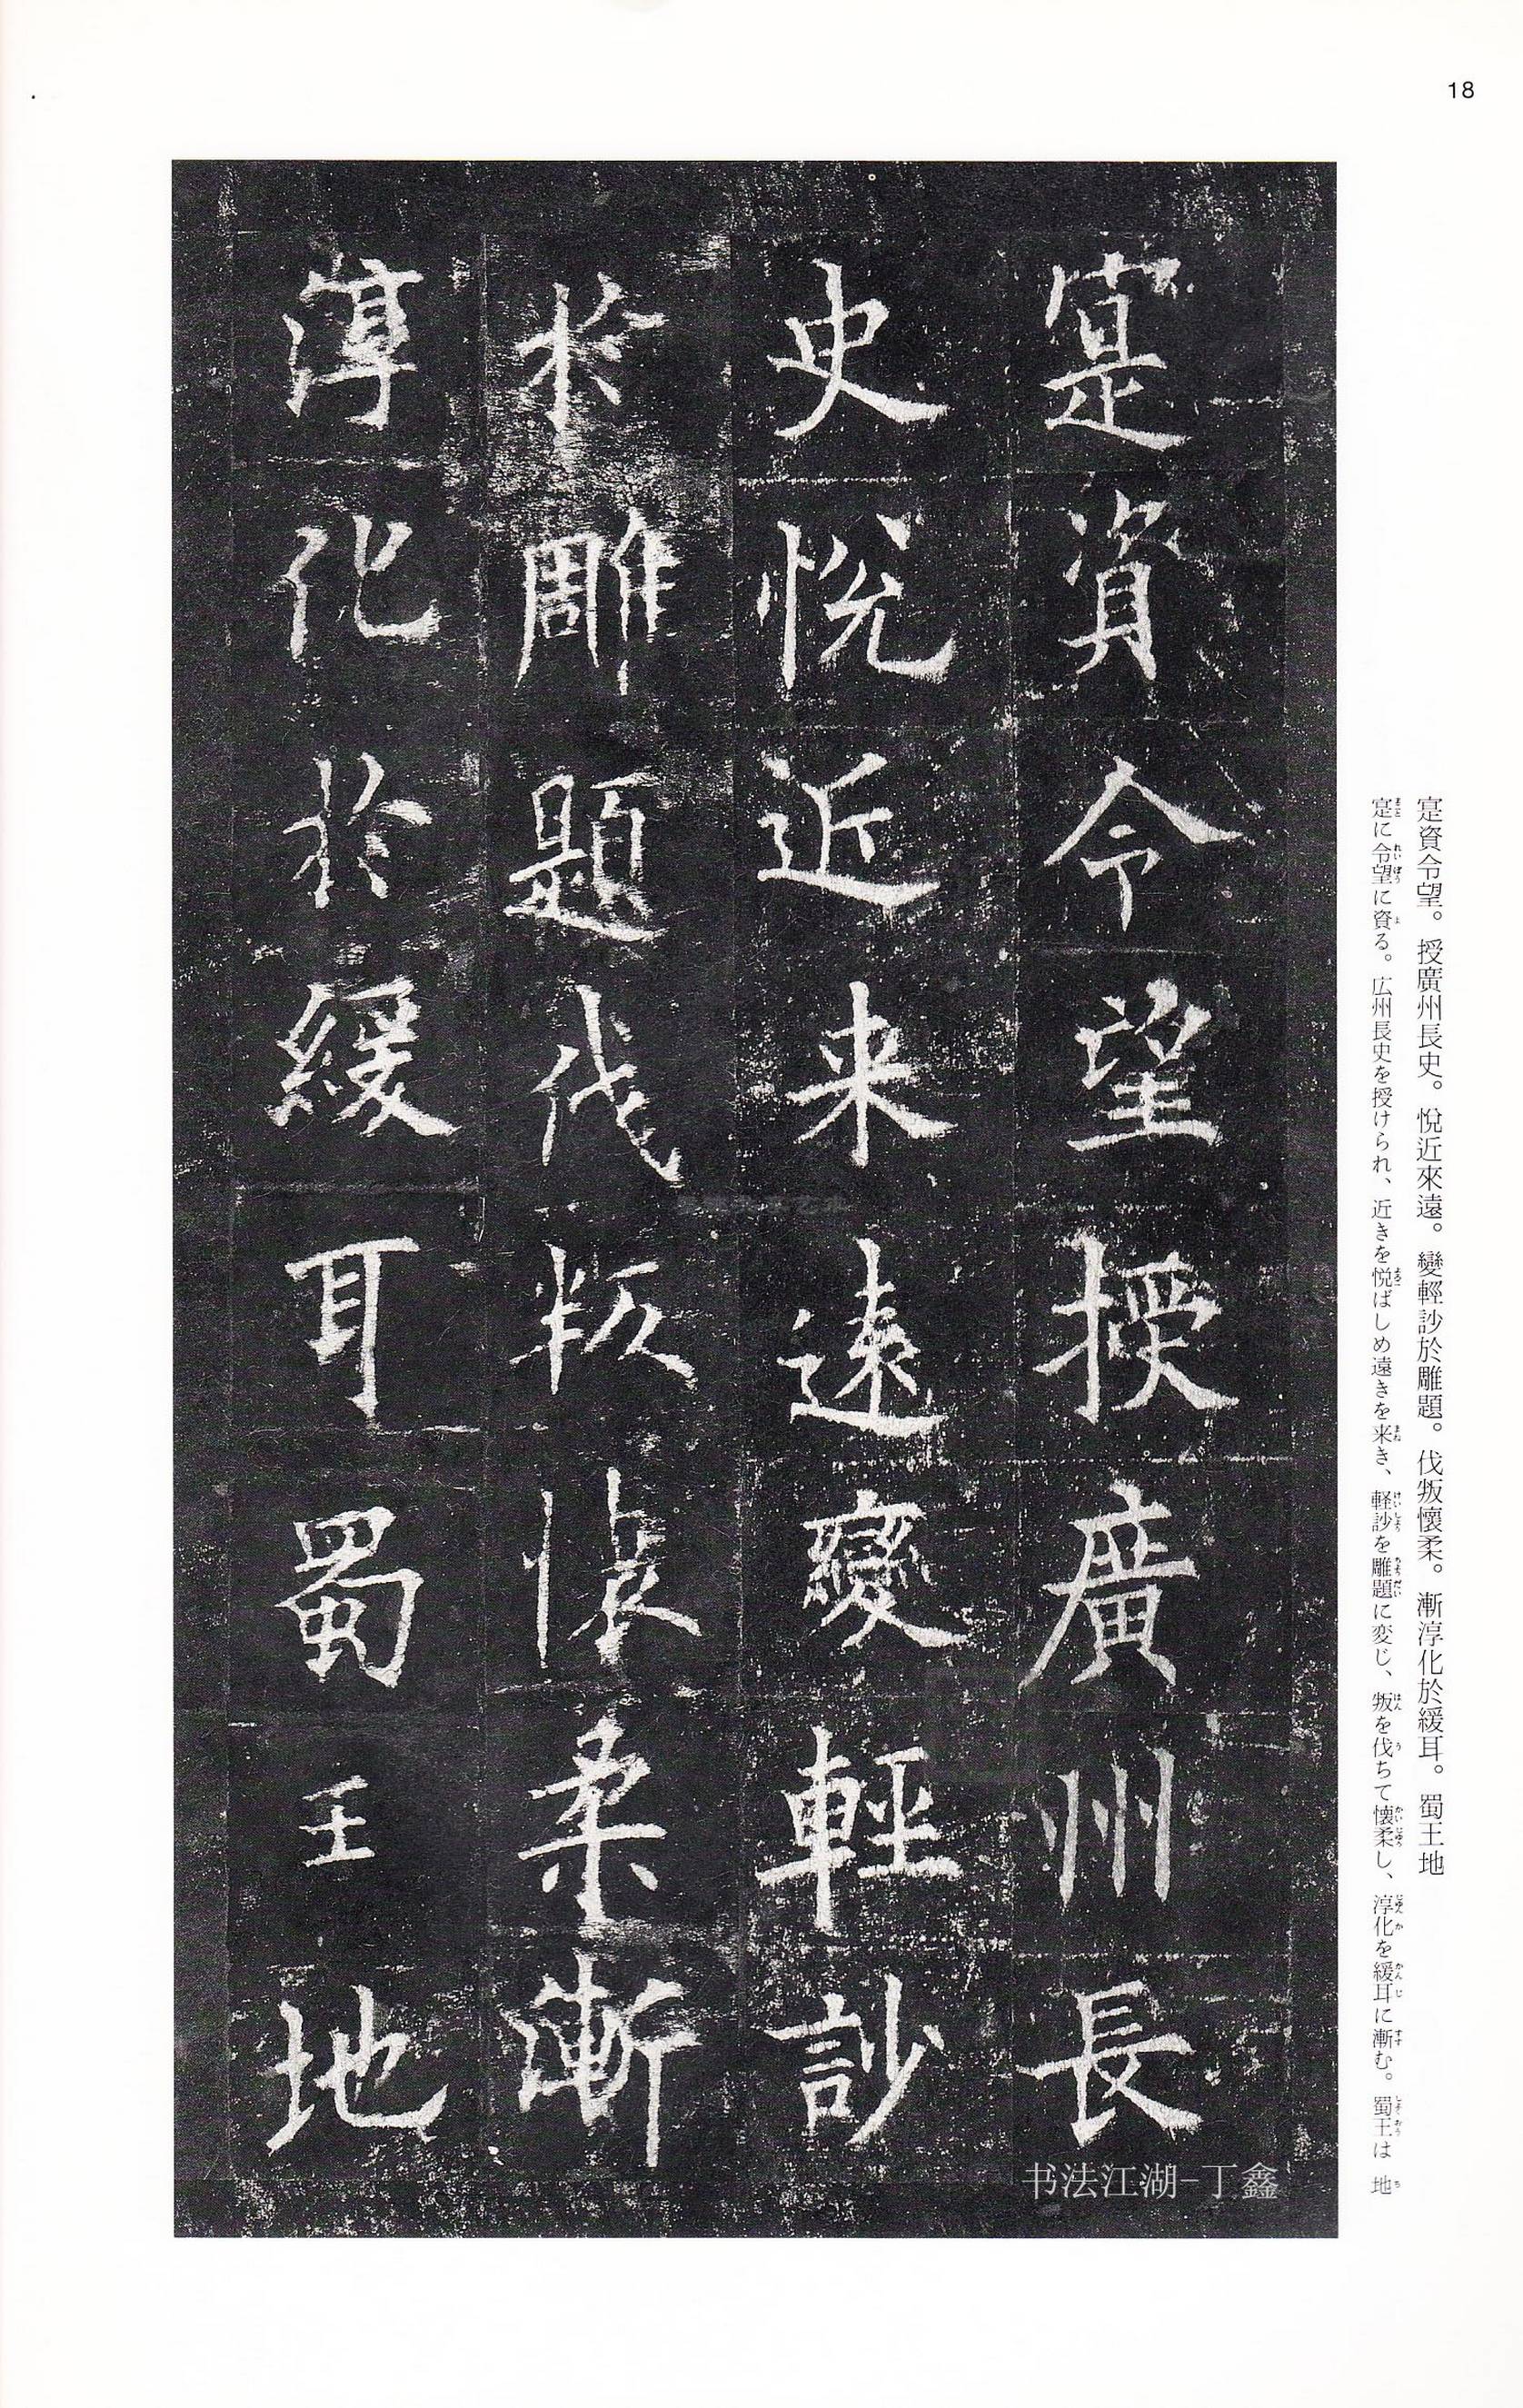 18
寔資令望。授廣州長史。悅近來遠。變輕訬於雕題。伐叛懷柔。漸淳化於緩耳。蜀王地
寔に令望に資る。広州長史を授けられ、近きを悦ばしめ遠きを来き、軽訬を雕題に変じ、叛を伐ちて懐柔し、淳化を緩耳に漸む。蜀王は 地
寔資令望授廣州長
史悅近来遠變輕訬
於雕題伐叛懷柔漸
淳化於緩耳蜀王地
书法江湖-丁鑫